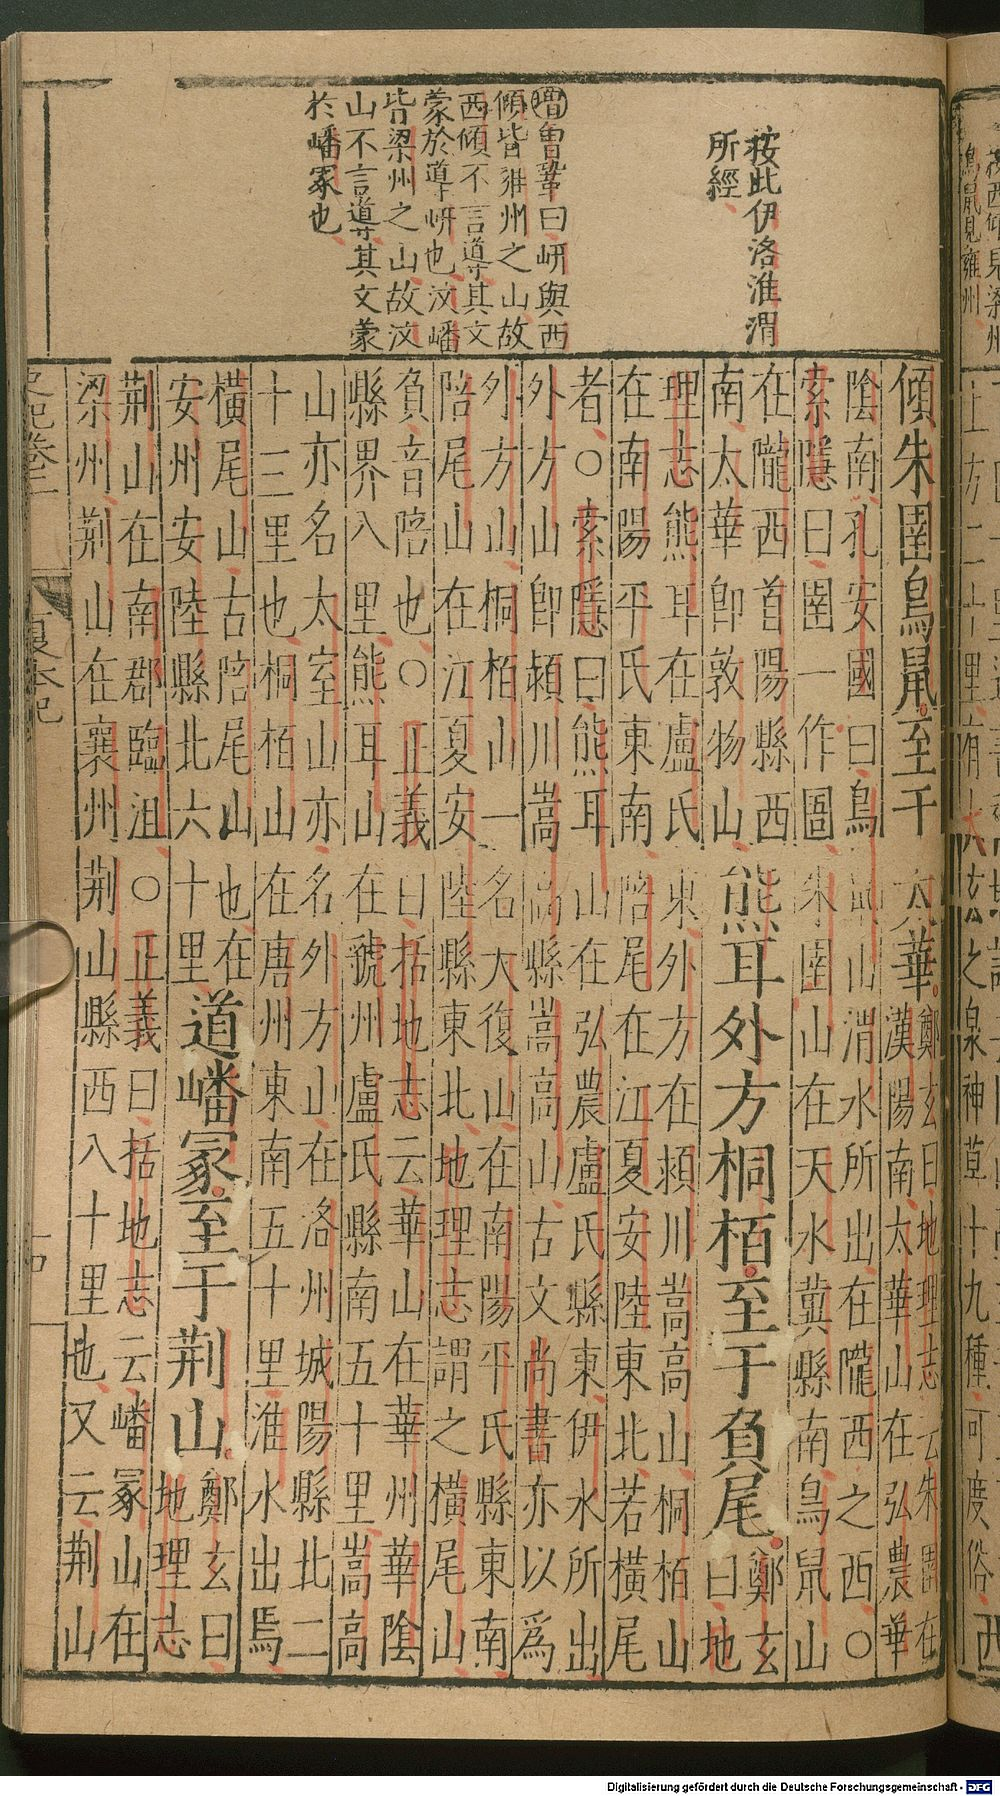 按此伊洛淮渭
所經
增曾鞏曰岍與西
傾皆雍州之山故
西傾不言導其文
蒙於導岍也汶嶓
皆梁州之山故汶
山不言導其文蒙
於嶓冢也
傾朱圉鳥鼠至于太華
鄭玄曰地理志云朱圉在
漢陽南太華山在弘農華
陰南孔安國曰鳥鼠山渭水所出在隴西之西〇
索隱曰圉一作圄朱圉山在天水冀縣南鳥鼠山
在隴西首陽縣西
南太華即敦物山
熊耳外方桐栢至于負尾
鄭玄
曰地
理志熊耳在盧氏東外方在潁川嵩高山桐栢山
在南陽平氏東南陪尾在江夏安陸東北若橫尾
者〇索隱曰熊耳山在弘農盧氏縣東伊水所出
外方山即潁川嵩高縣嵩高山古文尚書亦以為
外方山桐栢山一名大復山在南陽平氏縣東南
陪尾山在江夏安陸縣東北地理志謂之橫尾山
負音陪也〇正義曰括地志云華山在華州華陰
縣界八里熊耳山在虢州盧氏縣南五十里嵩高
山亦名太室山亦名外方山在洛州城陽縣北二
十三里也桐栢山在唐州東南五十里淮水出焉
橫尾山古陪尾山也在
安州安陸縣北六十里
道嶓冢至于荊山
鄭玄曰
地理志
荊山在南郡臨沮〇正義曰括地志云嶓冢山在
梁州荊山在襄州荊山縣西八十里也又云荊山
史記卷二
夏本紀
Digitalisierung gefördert durch die Deutsche Forschungsgemeinschaft - DFG